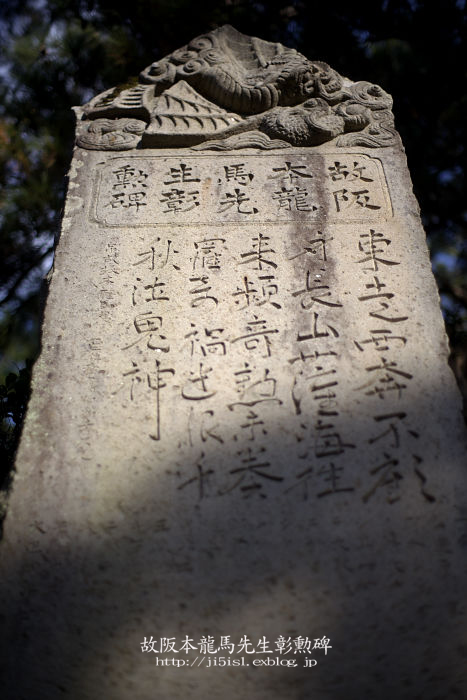 故阪
本龍
馬先
生彰
勲碑
東走西奔不顧
身長山薩海往
来頻奇勲未奏
羅奇禍遺恨千
秋泣鬼神
故阪本龍馬先生彰勲碑
http://ji5isl.exblog.jp